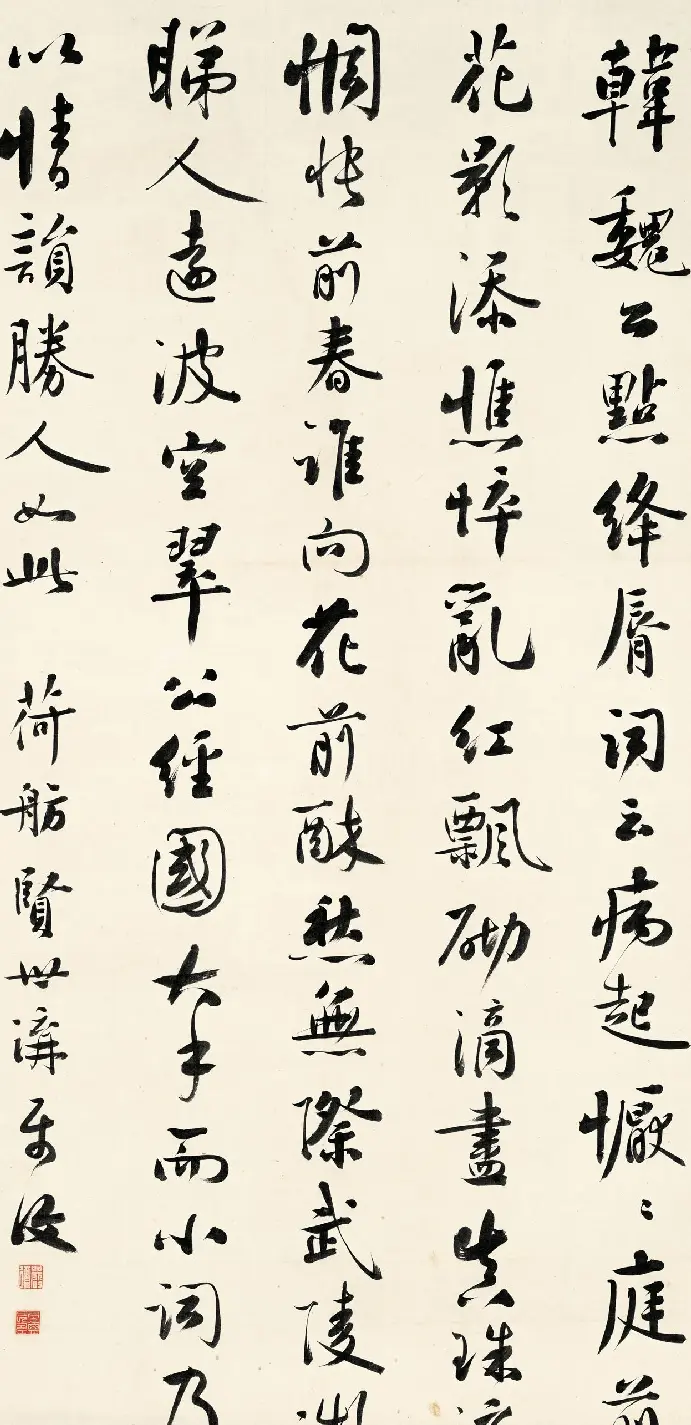 韓魏公點絳脣詞云病起懨〻庭前
花影添憔悴亂紅飄砌滴盡真珠淚
惆悵前春誰向花前醉愁無際武陵凝
睇人遠波空翠公經國大手而小詞乃
以情韻勝人如此
荷舫賢世講屬